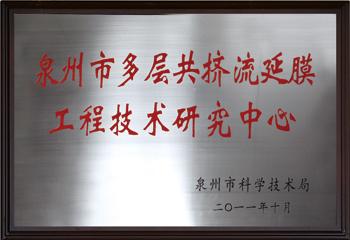 泉州市多层共挤流延膜
工程技术研究中心
泉州市科学技术局
二〇一一年十月